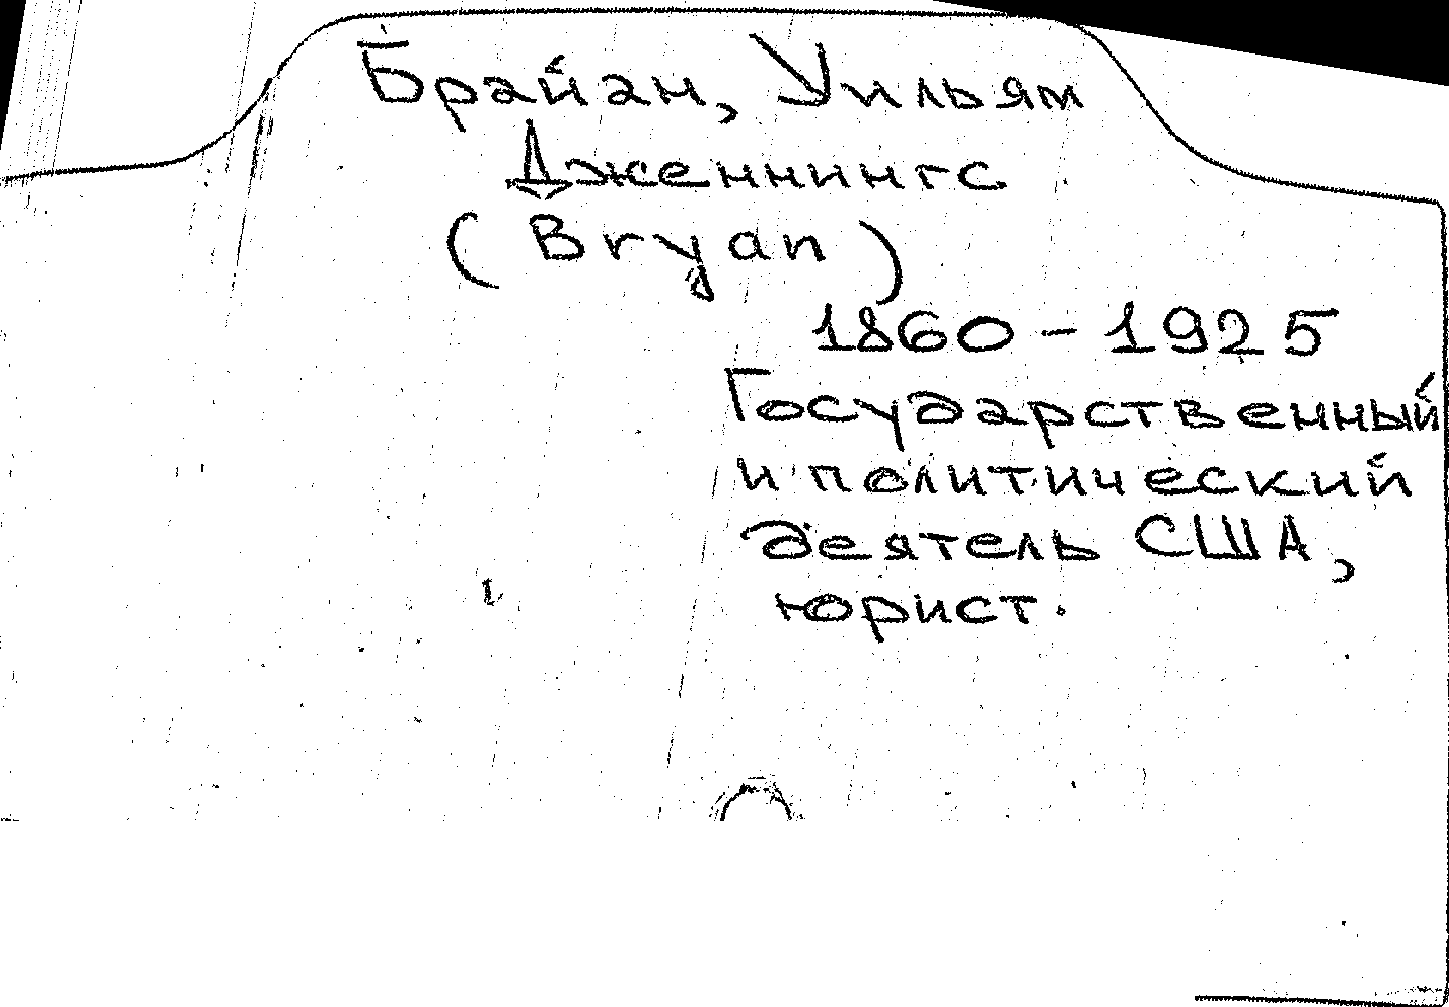 Брайан, Уильям
Дженнингс
(Bryan)
1860-1925
Государственный
и политический
деятель США,
юрист.